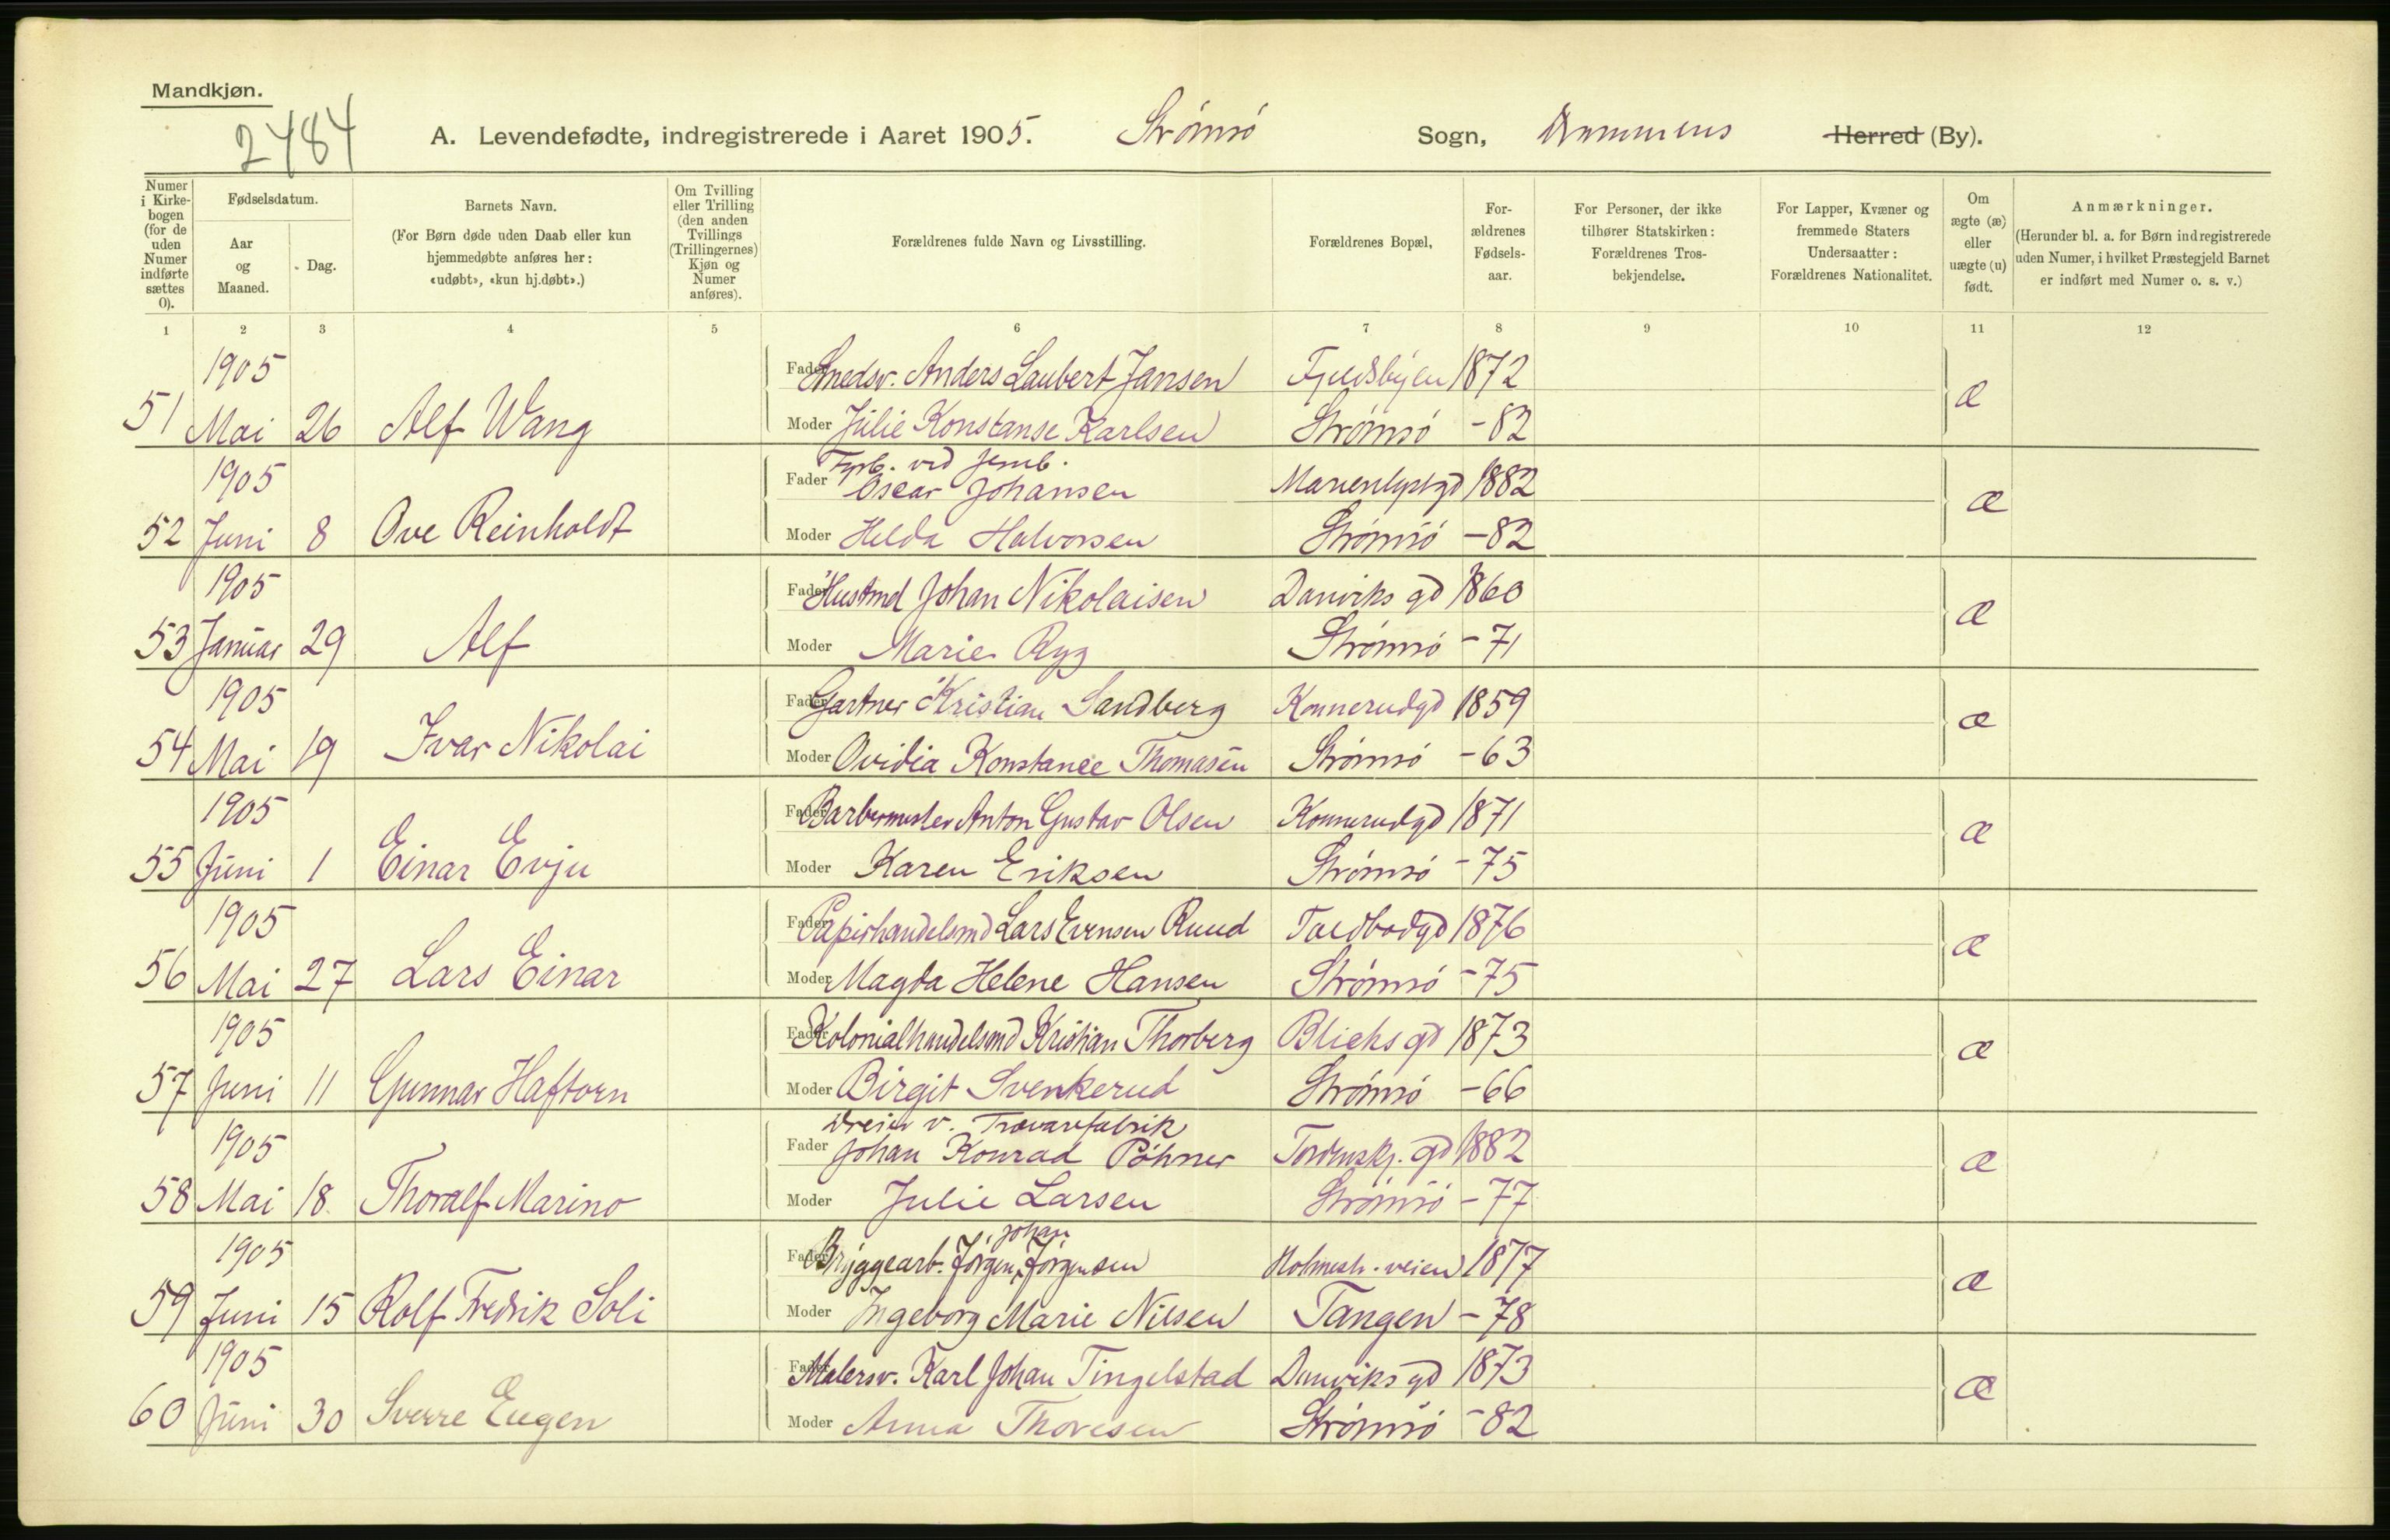 Mandkjøn.
2484
A. Levendefødte, indregistrerede i Aaret 1905. Strømsø Sogn, Drammens Herred (By).
Numer i Kirke-bogen (for de uden Numer indførte sættes 0).
Fødselsdatum.
Aar og Maaned.
Dag.
Barnets Navn.
(For Børn døde uden Daab eller kun hjemmedøbte anføres her: «udøbt», «kun hj.døbt».)
Om Tvilling eller Trilling (den anden Tvillings (Trillingernes) Kjøn og Numer anføres).
Forældrenes fulde Navn og Livsstilling.
Forældrenes Bopæl,
For-ældrenes Fødsels-aar.
For Personer, der ikke tilhører Statskirken: Forældrenes Tros-bekjendelse.
For Lapper, Kvæner og fremmede Staters Undersaatter: Forældrenes Nationalitet.
Om ægte (æ) eller uægte (u) født.
Anmærkninger.
(Herunder bl. a. for Børn indregistrerede uden Numer, i hvilket Præstegjeld Barnet er indført med Numer o. s. v.)
1 2 3 4 5 6 7 8 9 10 11 12
1905 Fader Smedsv. Anders Laubert Jansen Fjeldsbyen 1872 æ
51 Mai 26 Alf Wang Moder Julie Konstanse Karlsen Strømsø -82
Fyrb. ved Jernb.
1905 Fader Oscar Johansen Marienlystgd 1882 æ
52 Juni 8 Ove Reinholdt Moder Helda Halvorsen Strømsø -82
1905 Fader Hustmd Johan Nikolaisen Danviks gd 1860 æ
53 Januar 29 Alf Moder Marie Ryg Strømsø -71
1905 Fader Gartner Kristian Sandberg Konnerudgd 1859 æ
54 Mai 19 Ivar Nikolai Moder Ovidia Konstance Thomasen Strømsø -63
1905 Fader Barbermester Anton Gustav Olsen Konnerudgd 1871 æ
55 Juni 1 Einar Evju Moder Karen Eriksen Strømsø -75
1905 Fader Papirhandelsmd Lars Evensen Ruud Toldbodgd 1876 æ
56 Mai 27 Lars Einar Moder Magda Helene Hansen Strømsø -75
1905 Fader Kolonialhandelsmd Kristian Thorberg Blichs gd 1873 æ
57 Juni 11 Gunnar Haftorn Moder Birgit Svenkerud Strømsø -66
Dreier v. Trævarefabrik
1905 Fader Johan Konrad Pöhner Tordenskj. gd 1882 æ
58 Mai 18 Thoralf Marino Moder Julie Larsen Strømsø -77
Johan
1905 Fader Bryggearb. Jørgen Jørgensen Holmestr. veien 1877 æ
59 Juni 15 Rolf Fredrik Soli Moder Ingeborg Marie Nilsen Tangen -78
1905 Fader Malersv. Karl Johan Tingelstad Danviks gd 1873 æ
60 Juni 30 Sverre Eugen Moder Anna Thoresen Strømsø -82